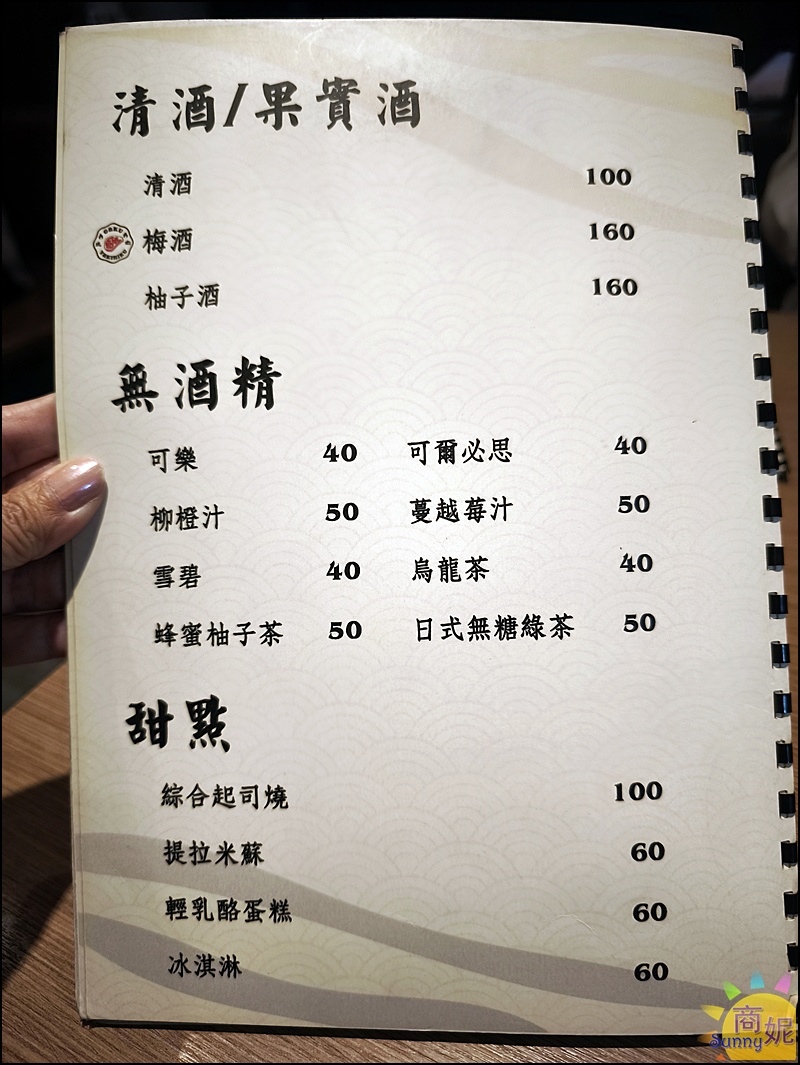 清酒/果實酒
清酒 100
梅酒 160
柚子酒 160
無酒精
可樂 40 可爾必思 40
柳橙汁 50 蔓越莓汁 50
雪碧 40 烏龍茶 40
蜂蜜柚子茶 50 日式無糖綠茶 50
甜點
綜合起司燒 100
提拉米蘇 60
輕乳酪蛋糕 60
冰淇淋 60
商妮
Sunny